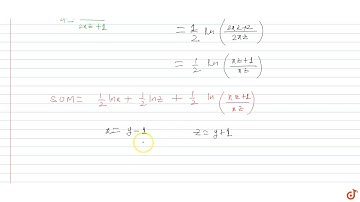 2xz+1
= 1/2 ln (2xz+2/2xz)
= 1/2 ln (xz+1/xz)
SOM= 1/2 lnx + 1/2 lnz + 1/2 ln (xz+1/xz)
x= y-1 z= y+1